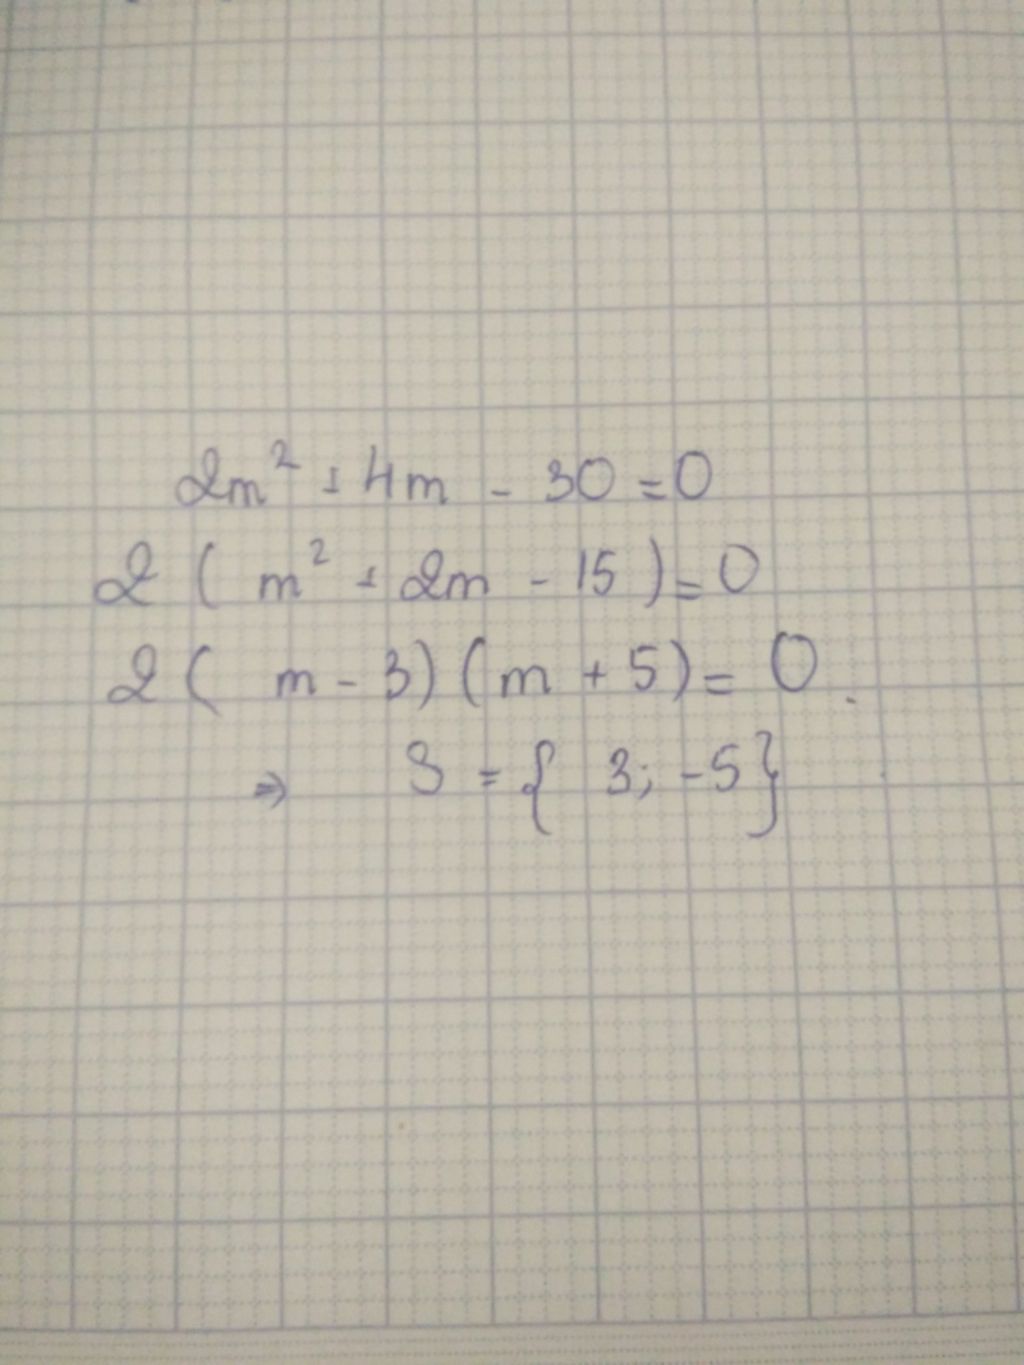 2m² + 4m - 30 = 0
2 ( m² + 2m - 15 ) = 0
2 ( m - 3) (m + 5) = 0.
⇒ S = { 3; -5}